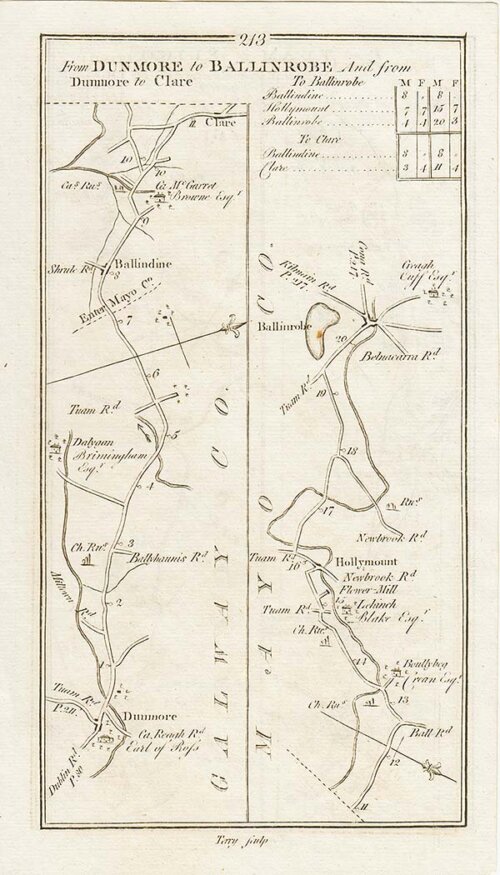 213
From DUNMORE to BALLINROBE And from
Dunmore to Clare
To Ballinrobe M F M F
Ballindine 8 . 8 .
Hollymount 7 7 15 7
Ballinrobe 4 4 20 3
To Clare
Ballindine 8 . 8 .
Clare 3 4 11 4
Clare
10
10
Ca. Mc Garret
Browne Esqr.
9
Ballindine
Shrule Rd
8
Enter Mayo Co.
7
6
Tuam Rd
5
Dalygan
Brimingham
Esqr.
4
3
Ch. Rus.
Ballyhannis Rd
Miltown Rd
2
1
Tuam Rd
P. 211.
Dunmore
Ca. Reagh Rd
Earl of Ross
Dublin Rd
P. 80
GALWAY CO.
MAYO CO.
Kilmain Rd
P. 217.
Cong Rd
P. 217
Creagh
Cuff Esqr.
Ballinrobe
20
Belnacarra Rd
Tuam Rd
19
18
Rus.
17
Newbrook Rd
Tuam Rd
16
Hollymount
Newbrook Rd
Flower Mill
15
Lehinch
Blake Esqr.
Tuam Rd
Ch. Rus.
14
Boullybeg
Crean Esqr.
13
Ch. Rus.
Ball Rd
12
11
Terry sculp